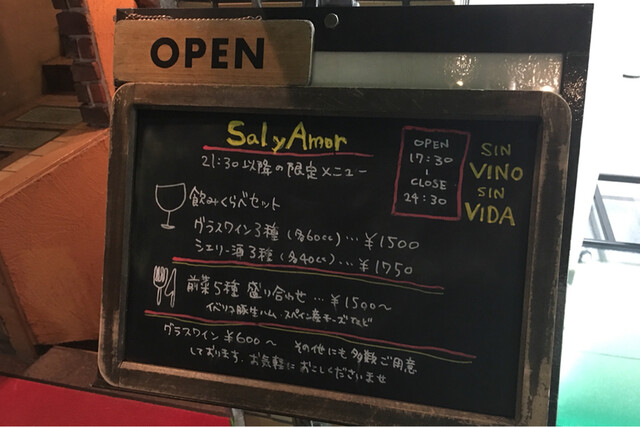 OPEN
Sal y Amor
21:30以降の限定メニュー
OPEN
17:30
|
CLOSE
24:30
SIN
VINO
SIN
VIDA
飲みくらべセット
グラスワイン3種(各60cc)…¥1500
シェリー酒3種(各40cc)…¥1750
前菜5種盛り合わせ…¥1500〜
イベリコ豚生ハム・スペイン産チーズなど
グラスワイン¥600〜 その他にも多数ご用意
しております。お気軽におこしくださいませ